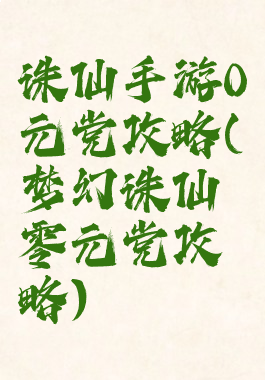 诛仙手游0
元党攻略(
梦幻诛仙
零元党攻
略)